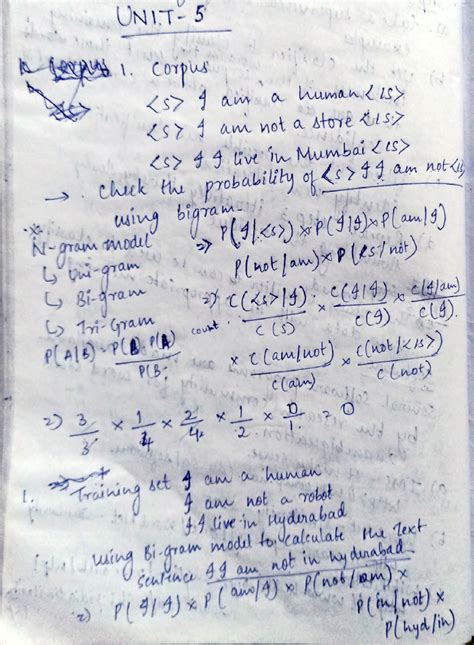 UNIT-5
1. Corpus
<s> I am a human <1s>
<s> I am not a store <1s>
<s> I I live in Mumbai <1s>
→ check the probability of <s> I I am not <1s>
using bigram
N-gram model
↳ Uni-gram
↳ Bi-gram
↳ Tri-Gram
P(A|B) = P(B P(A)
P(B
=> P(I|<s>) × P(I|I) × P(am|I)
P(not|am) × P(<s|not)
=> c(<s>|I) . c(I|I) × c(I|am)
count c(s) c(I) c(I)
× c(am|not) × c(not|<1s>)
c(am) c(not)
2) 3/3 × 1/4 × 2/4 × 1/2 × 0/1 = 0
1. Training set I am a human
I am not a robot
I I live in Hyderabad
using Bi-gram model to calculate the Text
sentence I I am not in hyderabad
2) P(I|I) × P(am|I) × P(not|am) ×
P(in|not) ×
P(hyd|in)